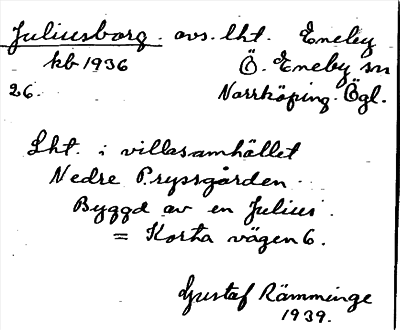 Juliusborg. avs. lht. Eneby
kb 1936 Ö. Eneby sn
26. Norrköping. Ögl.
Lht. i villasamhället
Nedre Pryssgården.
Byggd av en Julius.
= Korta vägen 6.
Gustaf Rämminge
1939.